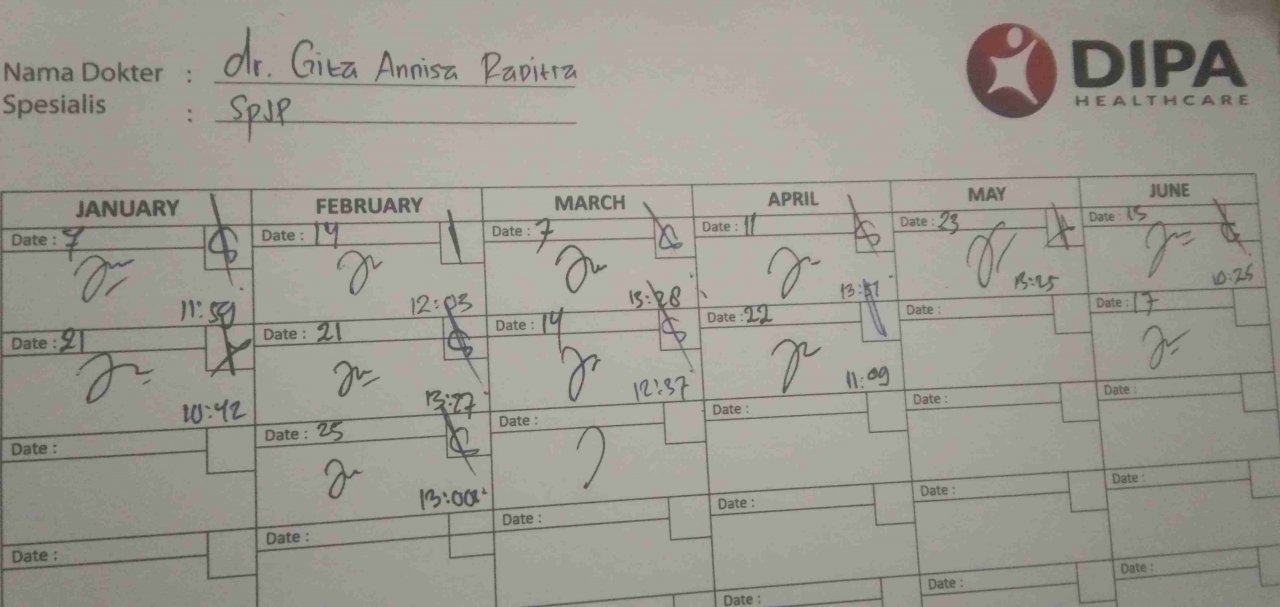 Nama Dokter : dr. Gita Annisa Raditra
Spesialis : SpJP
DIPA
HEALTHCARE
JANUARY FEBRUARY MARCH APRIL MAY JUNE
Date : 7 Date : 14 Date : 7 Date : 11 Date : 23 Date : 15
11:59 12:03 13:28 13:17 13:25 10:25
Date : 21 Date : 21 Date : 14 Date : 22 Date : Date : 17
10:42 13:27 12:37 11:09
Date : Date : 25 Date : Date : Date : Date :
13:00
Date : Date : Date : Date : Date : Date :
Date : Date : Date :